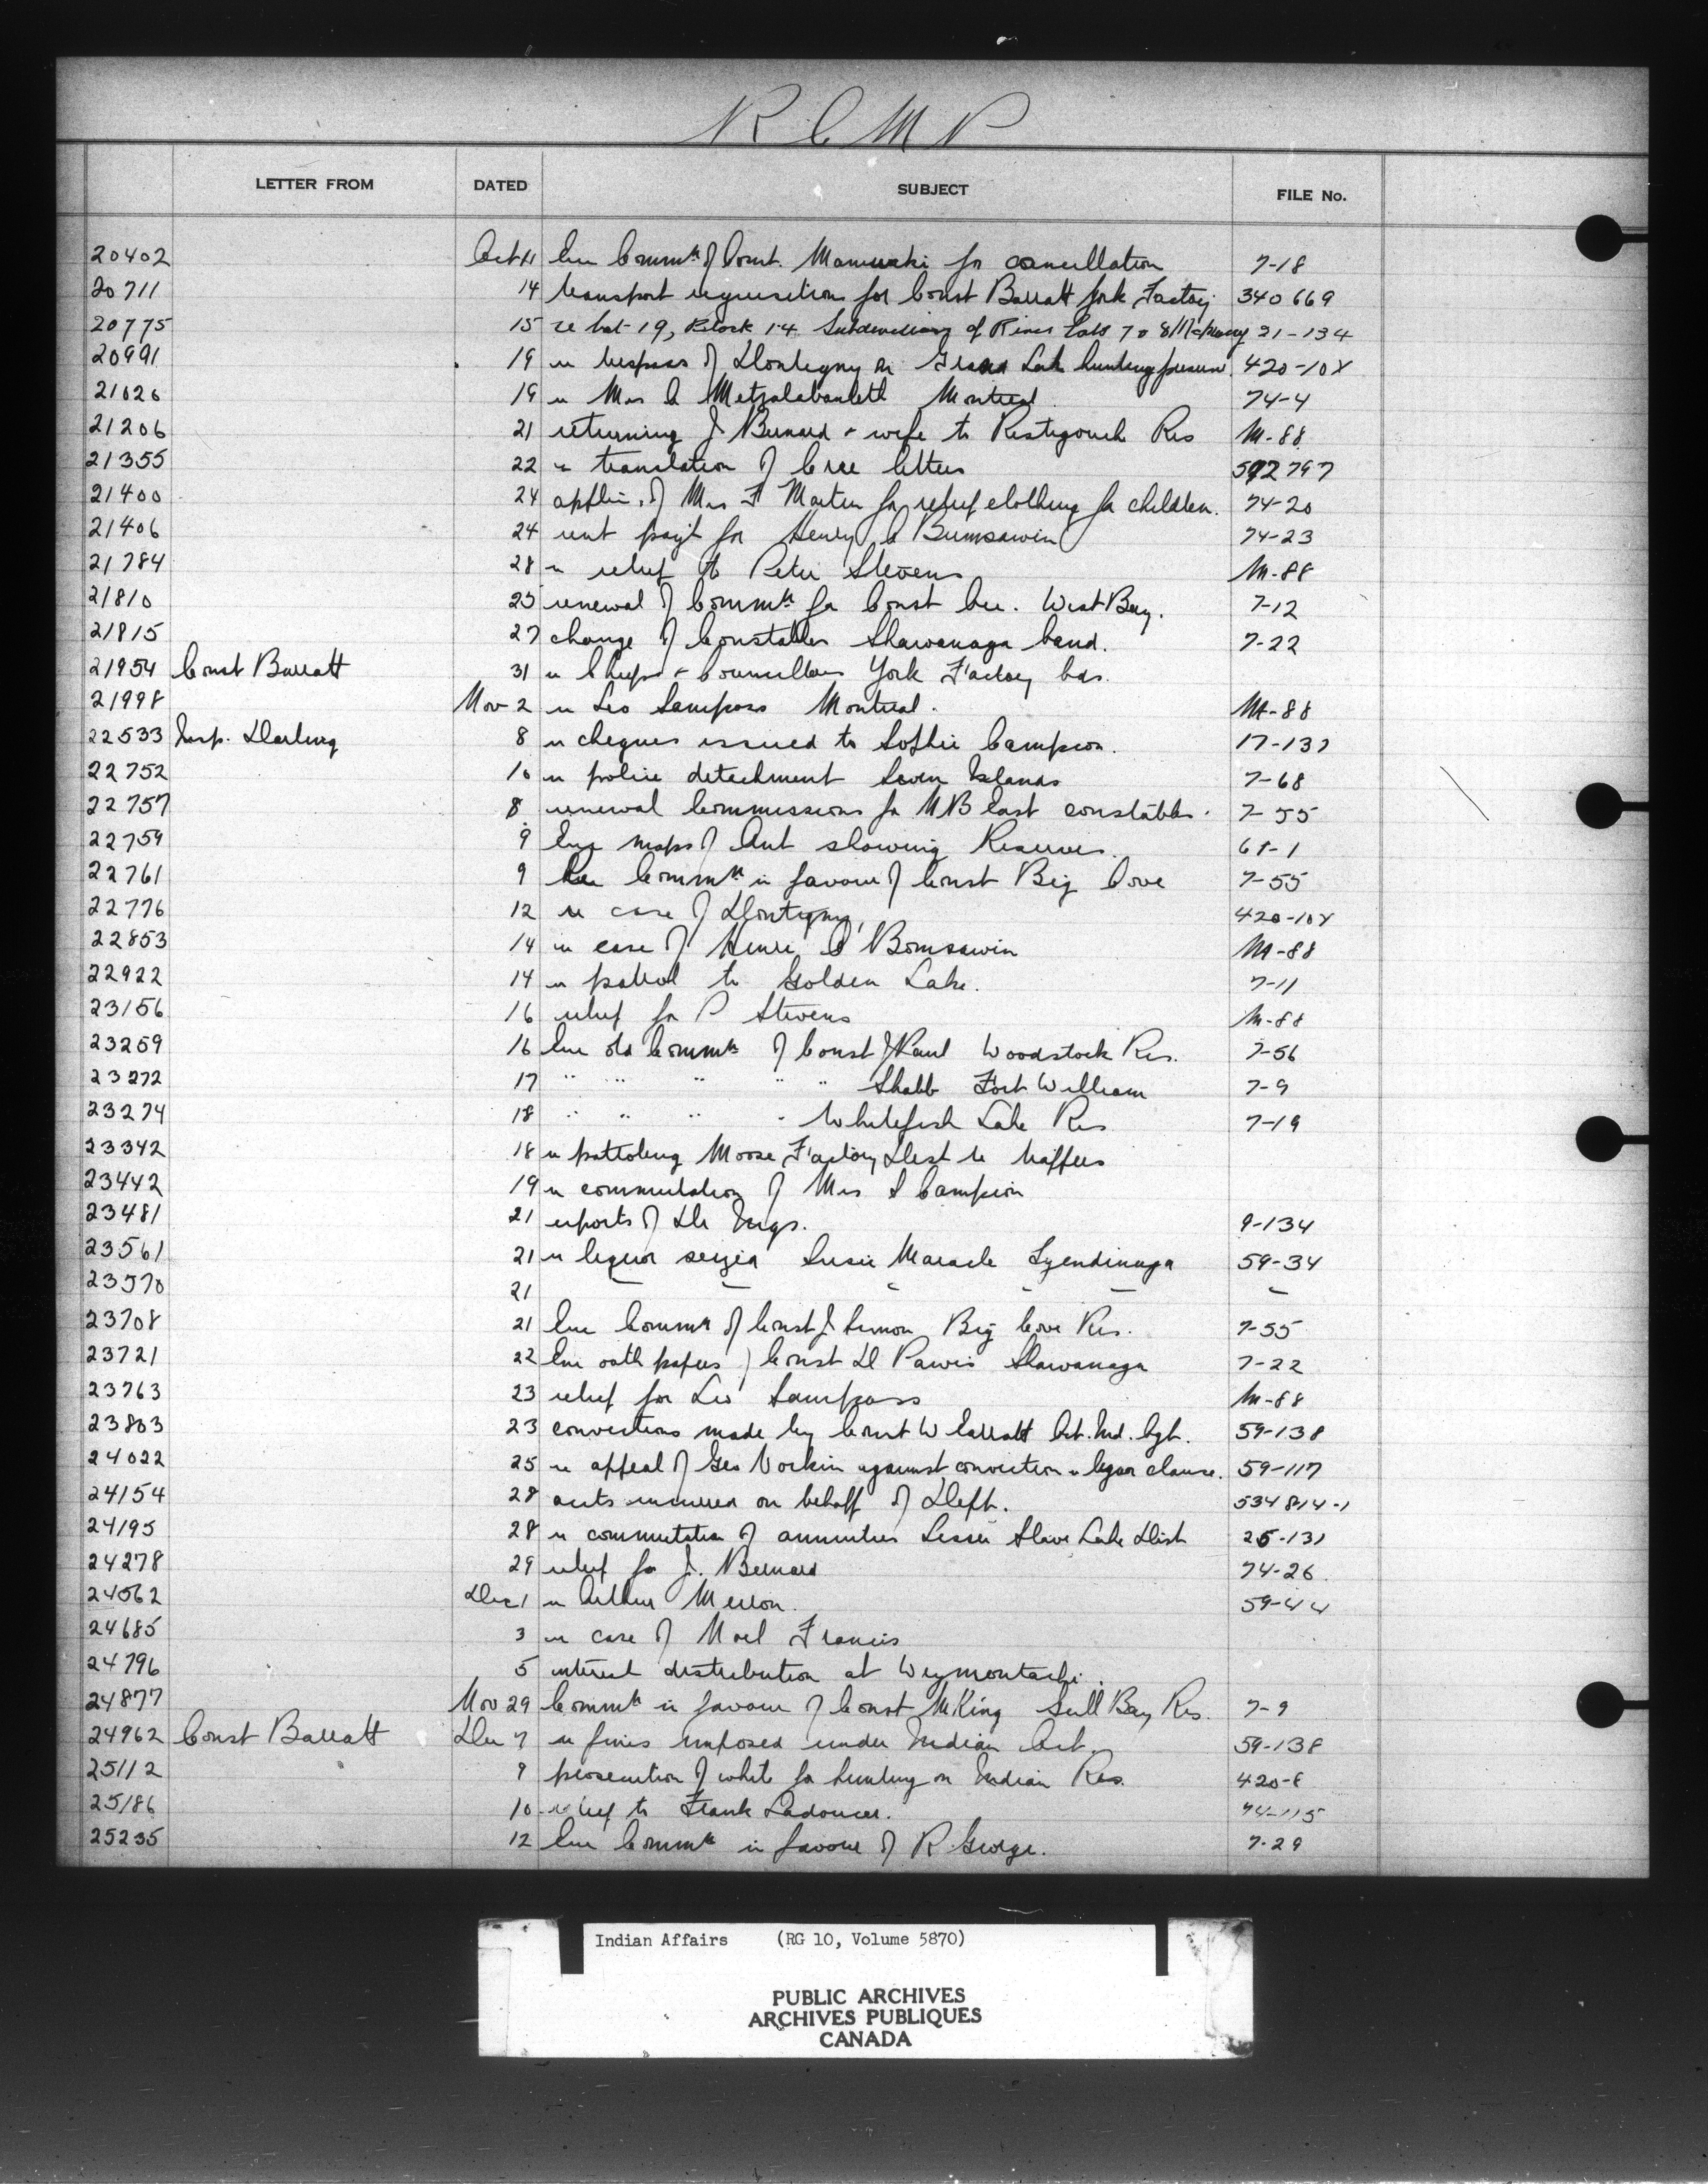 R C M P
LETTER FROM DATED SUBJECT FILE No.
20402 Oct 11 Enc Commn of Const. Maniwaki for cancellation 7-18
20711 14 transport requisition for Const Barratt York Factory 340669
20775 15 re Lot 19, Block 14 Subdivision of River Lots 7 & 8 McMurray 21-134
20991 19 re trespass of Dontigny on Grand Lake hunting preserve 420-10X
21026 19 re Mrs C Montreal 74-4
21206 21 returning J. Bernard & wife to Restigouche Res M-88
21355 22 re translation of Cree letters 592797
21400 24 applic. of Mrs F Martin for relief clothing for children. 74-20
21406 24 rent payt for Henry O Bumsawin 74-23
21784 28 re relief to Peter Stevens M-88
21810 25 renewal of Commn for Const Cee. West Bay. 7-12
21815 27 change of Constables Shawanaga band. 7-22
21954 Const Barratt 31 re Chiefs & Councillors York Factory bds.
21998 Nov 2 re Leo Sampass Montreal. M-88
22533 Insp. Darling 8 re cheques issued to Sophie Campion. 17-131
22752 10 re police detachment Seven Islands 7-68
22757 8 renewal Commissions for N B East constables. 7-55
22759 9 Enc maps of Ont showing Reserves. 68-1
22761 9 Enc Commn in favour of Const Big Cove 7-55
22776 12 re case of Dontigny, 420-10X
22853 14 re case of Henri O Bomsawin M-88
22922 14 re patrol to Golden Lake. 7-11
23156 16 relief for P Stevens M-88
23259 16 Enc old Commn of Const J Paul Woodstock Res. 7-56
23272 17 " " " " " Shabb Fort William 7-9
23274 18 " " " " Whitefish Lake Res 7-19
23342 18 re patroling Moose Factory Dist re trappers
23442 19 re commutation of Mrs S Campion
23481 21 reports of Dr Inys. 9-134
23561 21 re liquor seized Susie Maracle Tyendinaga 59-34
23570 21 " " " " " "
23708 21 Enc Commn of Const J Simon Big Cove Res. 7-55
23721 22 Enc oath papers of Const D Pawis Shawanaga 7-22
23763 23 relief for Leo Sampass M-88
23803 23 convictions made by Const W Barratt Act. Ind. Agt. 59-138
24022 25 re appeal of Geo Vockin against conviction u liquor clause. 59-117
24154 28 accts incurred on behalf of Dept. 534814-1
24195 28 re commutation of annuities Lesser Slave Lake Dist 25-131
24278 29 relief for J. Bernard 74-26
24562 Dec 1 re Arthur Merron. 59-44
24685 3 re case of Noel Francis
24796 5 interest distribution at Weymontachi.
24877 Nov 29 Commn in favour of Const McKing Gull Bay Res. 7-9
24962 Const Barratt Dec 7 re fines imposed under Indian Act. 59-138
25112 9 prosecution of white for hunting on Indian Res. 420-8
25186 10 relief to Frank Ladoucer. 74-115
25235 12 Enc Commn in favour of R. George. 7-29
Indian Affairs (RG 10, Volume 5870)
PUBLIC ARCHIVES
ARCHIVES PUBLIQUES
CANADA